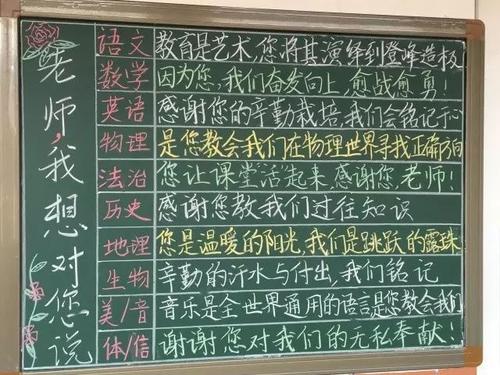 老师,我想对您说
语文 教育是艺术,您将其演绎到登峰造极
数学 因为您,我们奋发向上,愈战愈勇!
英语 感谢您的辛勤栽培,我们会铭记于心
物理 是您教会我们在物理世界寻找正确方向
法治 您让课堂活起来,感谢您,老师!
历史 感谢您教我们过往知识
地理 您是温暖的阳光,我们是跳跃的露珠
生物 辛勤的汗水与付出,我们铭记
美/音 音乐是全世界通用的语言是您教会我们
体/信 谢谢您对我们的无私奉献!